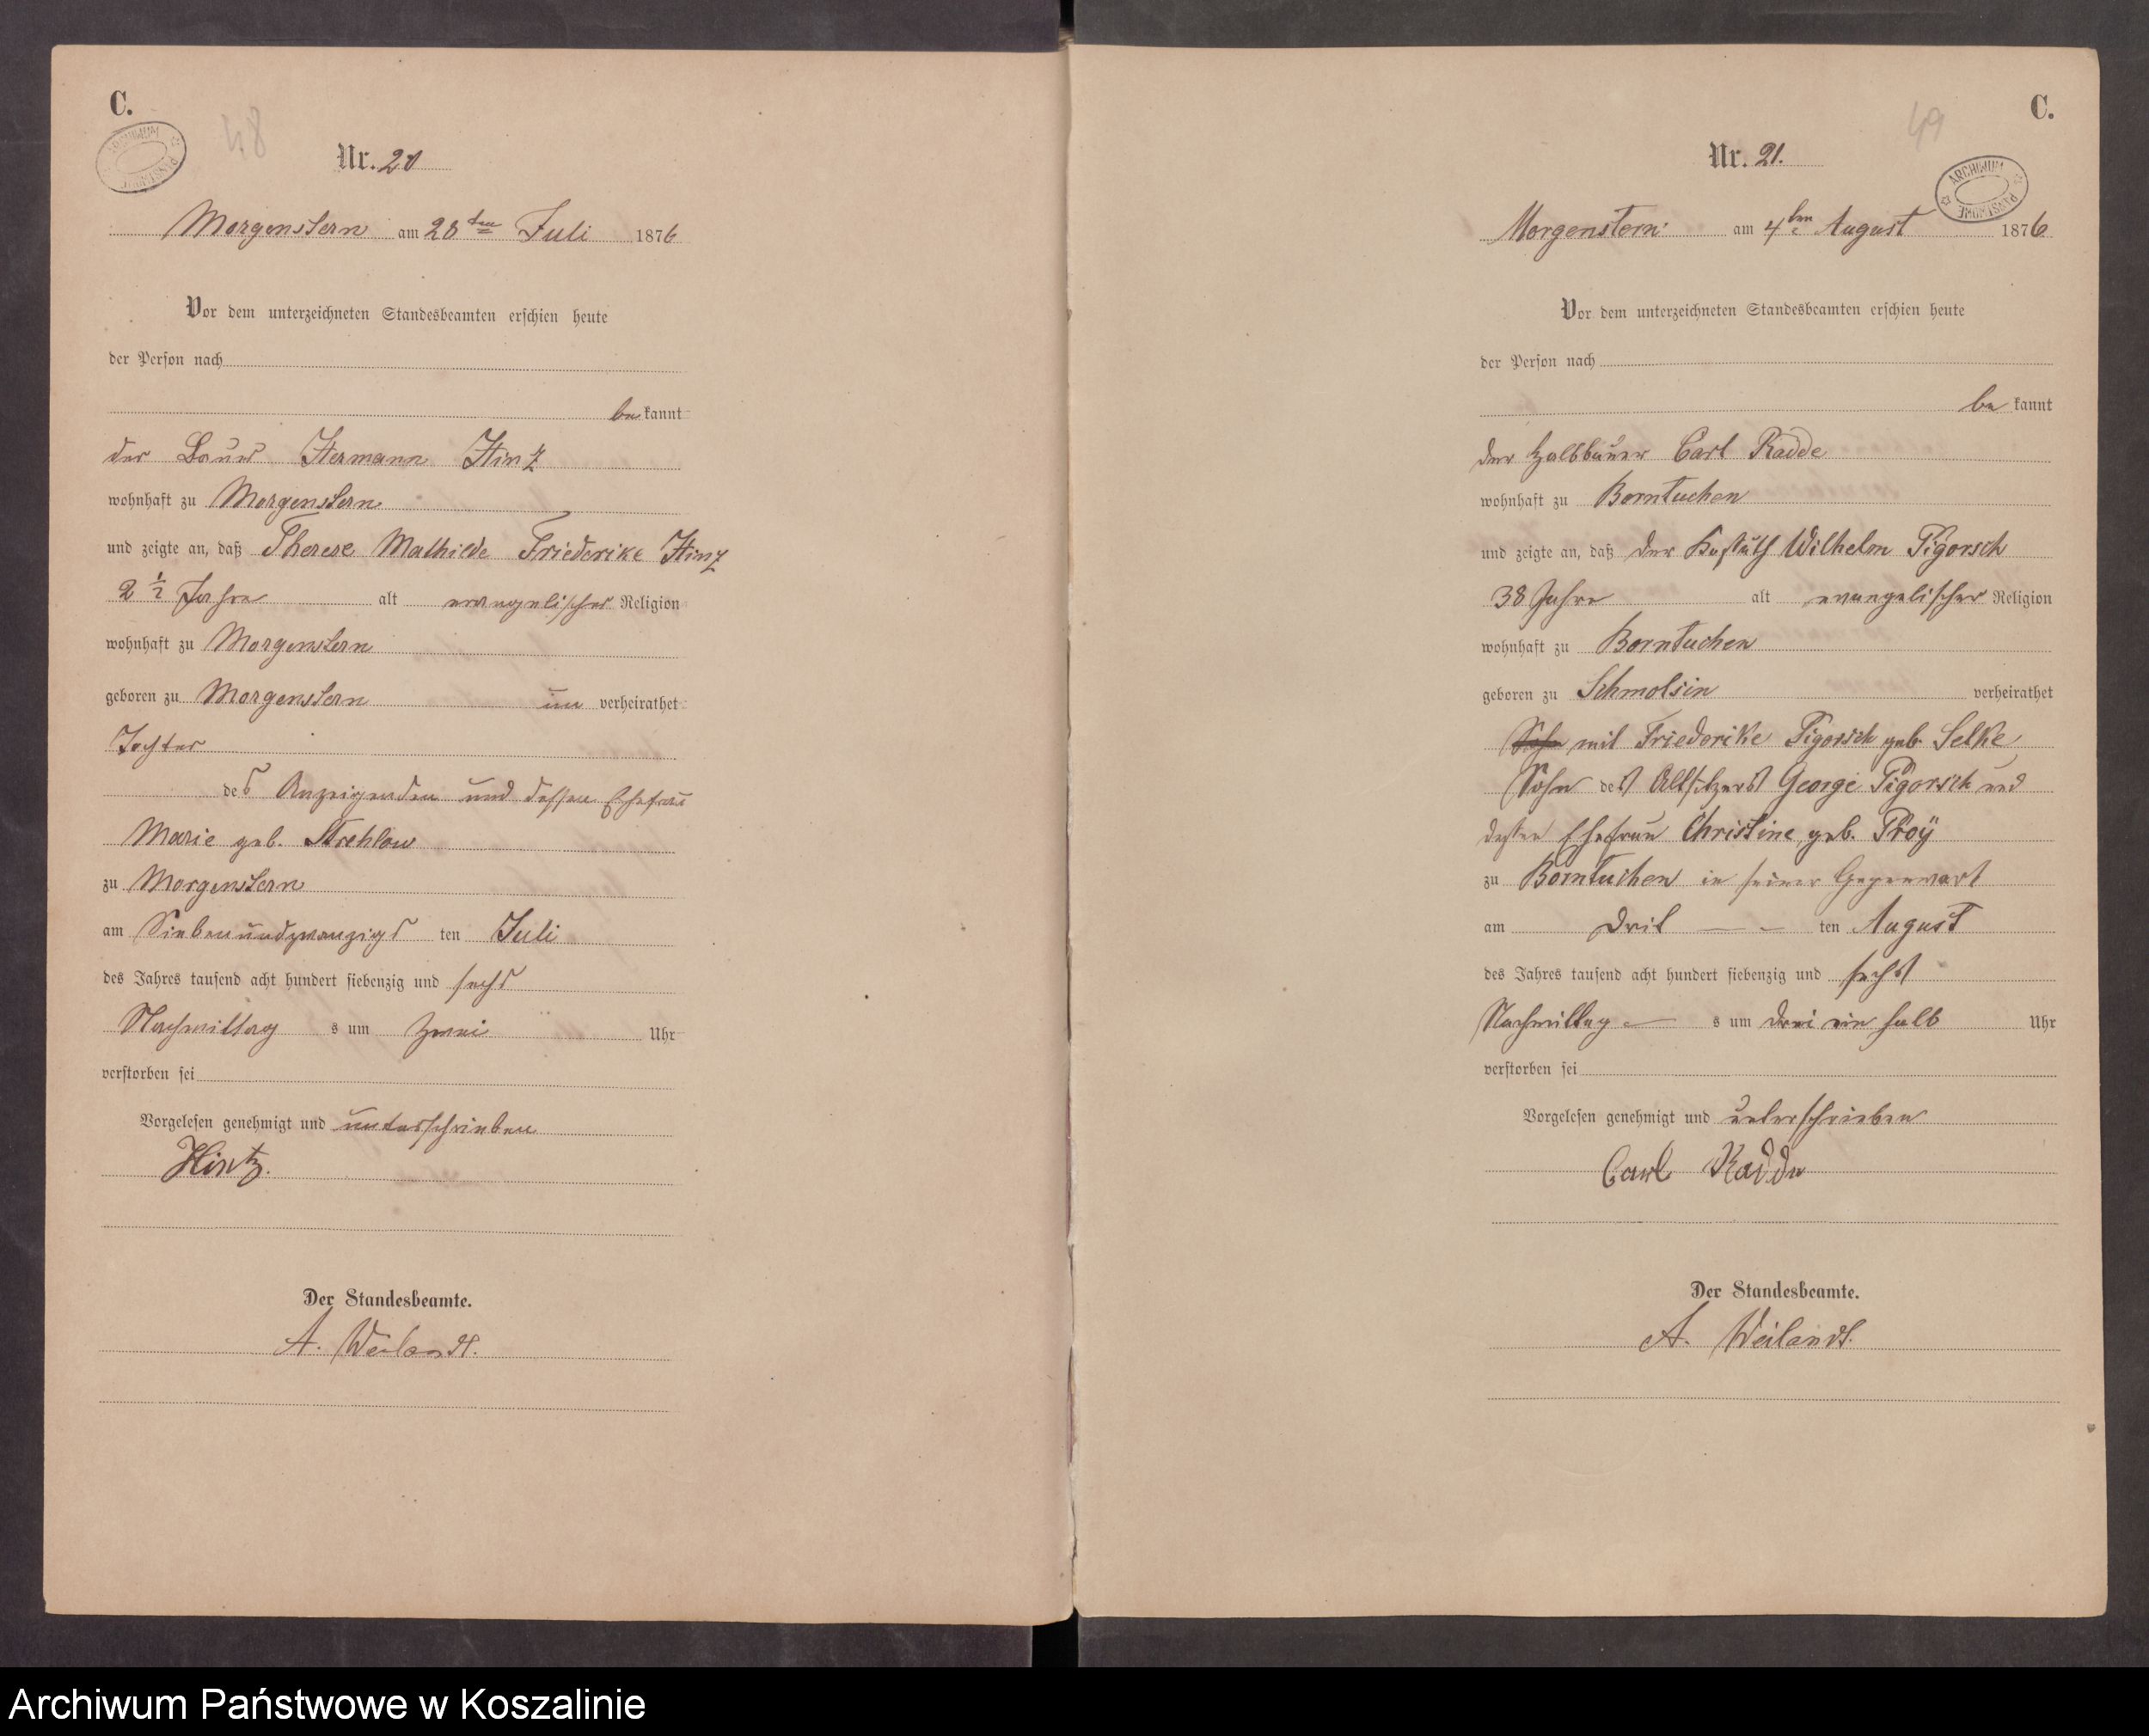 C.
48
Nr. 20
Morgenstern am 28ten Juli 1876
Vor dem unterzeichneten Standesbeamten erschien heute
der Person nach
be kannt
der Bauer Hermann Hinz
wohnhaft zu Morgenstern
und zeigte an, daß Therese Mathilde Friederike Hinz
2 1/2 Jahre alt evangelischer Religion
wohnhaft zu Morgenstern
geboren zu Morgenstern un verheirathet
Tochter
des Anzeigenden und dessen Ehefrau
Marie geb. Strehlow
zu Morgenstern
am Siebenundzwanzigs ten Juli
des Jahres tausend acht hundert siebenzig und sechs
Nachmittag s um zwei Uhr
verstorben sei
Vorgelesen genehmigt und unterschrieben
Hintz.
Der Standesbeamte.
A. Weilandt.
C.
49
ARCHIWUM PAŃSTWOWE
Nr. 21.
Morgenstern am 4ten August 1876
Vor dem unterzeichneten Standesbeamten erschien heute
der Person nach
be kannt
der Halbbauer Carl Radde
wohnhaft zu Borntuchen
und zeigte an, daß der Wilhelm Pigorsch
38 Jahre alt evangelischer Religion
wohnhaft zu Borntuchen
geboren zu Schmolsin verheirathet
Sohn mit Friederike Pigorsch geb. Selke
Sohn des Altsitzers George Pigorsch und
dessen Ehefrau Christine geb. Proÿ
zu Borntuchen in seiner Gegenwart
am Drit — - ten August
des Jahres tausend acht hundert siebenzig und sechs
Nachmittag — s um drei ein halb Uhr
verstorben sei
Vorgelesen genehmigt und unterschrieben
Carl Radde
Der Standesbeamte.
A. Weilandt.
Archiwum Państwowe w Koszalinie